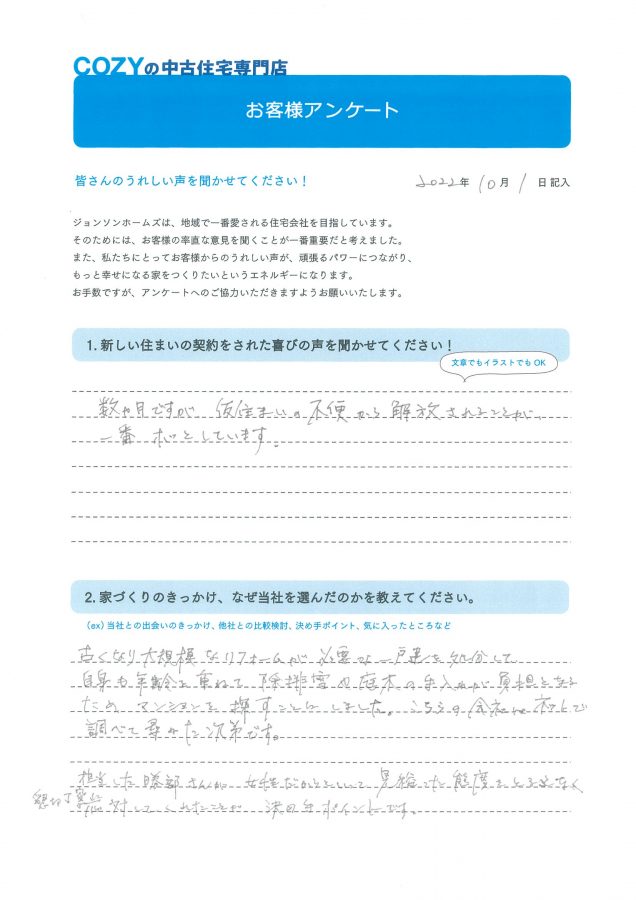 COZYの中古住宅専門店
お客様アンケート
皆さんのうれしい声を聞かせてください！
2022年 10月 1日記入
ジョンソンホームズは、地域で一番愛される住宅会社を目指しています。
そのためには、お客様の率直な意見を聞くことが一番重要だと考えました。
また、私たちにとってお客様からのうれしい声が、頑張るパワーにつながり、
もっと幸せになる家をつくりたいというエネルギーになります。
お手数ですが、アンケートへのご協力いただきますようお願いいたします。
1. 新しい住まいの契約をされた喜びの声を聞かせてください！
文章でもイラストでもOK
数ヶ月ですが 仮住まいの不便から解放されることが、
一番 ホッとしています。
2. 家づくりのきっかけ、なぜ当社を選んだのかを教えてください。
（ex）当社との出会いのきっかけ、他社との比較検討、決め手ポイント、気に入ったところなど
古くなり大規模なリフォームが必要な一戸建を処分して
自身も年齢を重ねて 除排雪や庭木の手入れが負担となる
ため マンションを 探すことにしました。こちらの会社はネットで
調べて尋ねた次第です。
担当した勝部さんが 女性だからといって 見縊った態度をとることなく
懇切丁寧に対してくれたことが 決め手ポイントです。